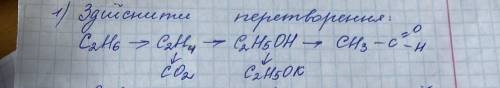 1) Здійснити перетворення:
C₂H₆ → C₂H₄ → C₂H₅OH → CH₃ - C=O - H
↓ ↓
CO₂ C₂H₅OK